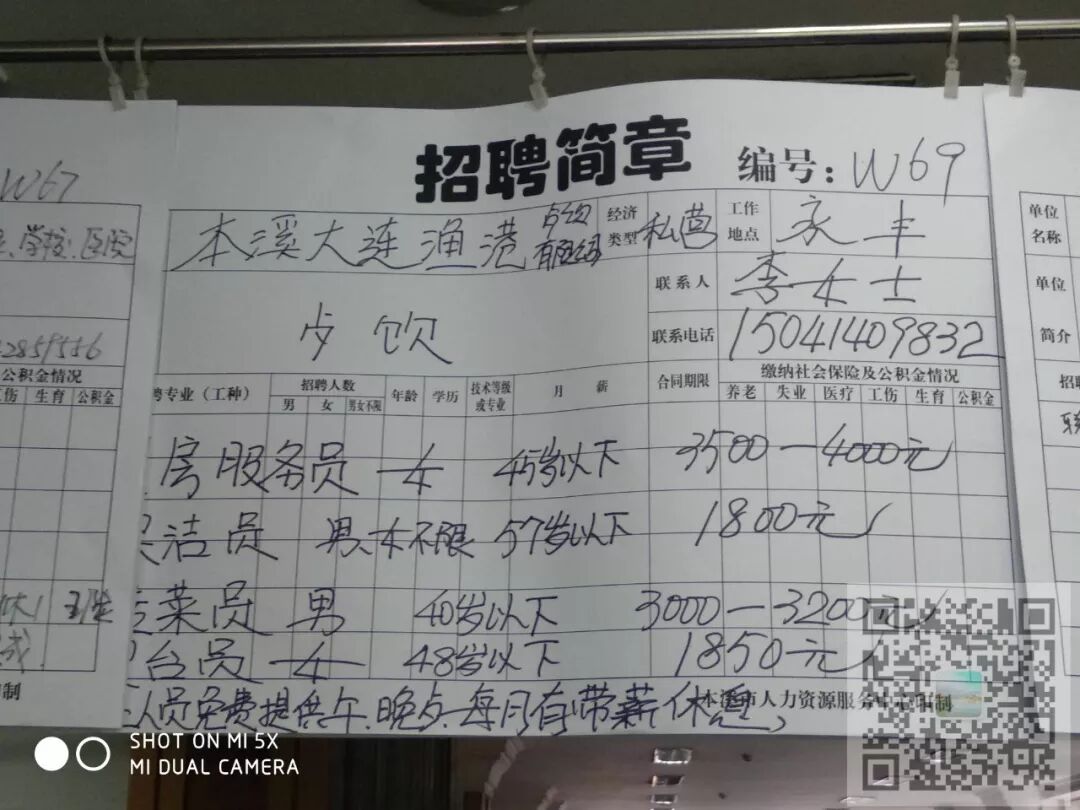 招聘简章
编号：W69
本溪大连渔港 有限公司 经济类型 私营 工作地点 永丰
联系人 李女士
联系电话 15041409832
聘专业（工种） 招聘人数 男 女 男女不限 年龄 学历 技术等级或专业 月薪 合同期限 缴纳社会保险及公积金情况 养老 失业 医疗 工伤 生育 公积金
房服务员 女 45岁以下 3500—4000元
洁员 男.女不限 57岁以下 1800元
菜员 男 40岁以下 3000—3200元
台员 女 48岁以下 1850元
人员免费提供午.晚点.每月有带薪休息,
本溪市人力资源服务中心印制
W67
学校.医院
2859556
公积金情况
工伤 生育 公积金
印制
单位名称
单位
简介
招聘
SHOT ON MI 5X
MI DUAL CAMERA